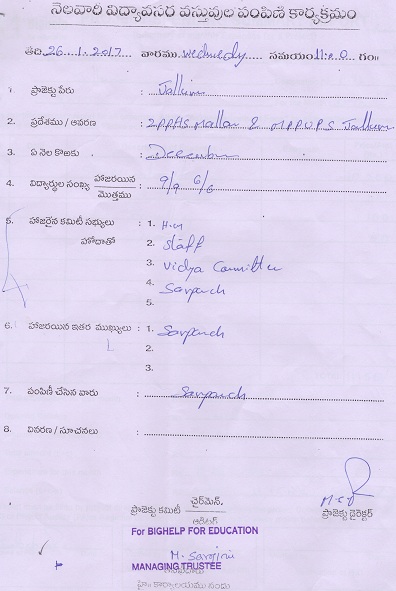 నెలవారి విద్యావసర వస్తువుల పంపిణి కార్యక్రమం
తేది 26.1.2017 వారము Wednesday సమయం 11:00 గం॥
1 ప్రాజెక్టు పేరు : Jallum
2. ప్రదేశము / ఆవరణ : ZPPHS Mallam & MPPUPS Jallum
3. ఏ నెల కొఱకు : December
4. విద్యార్థుల సంఖ్య హాజరయిన / మొత్తము : 9/9 6/6
5. హాజరైన కమిటీ సభ్యులు : 1. H.M
హోదాతో 2. Staff
3. Vidya Committee
4. Sarpanch
5.
6. హాజరయిన ఇతర ముఖ్యులు : 1. Sarpanch
2.
3.
7. పంపిణీ చేసిన వారు : Sarpanch
8. వివరణ / సూచనలు :
ప్రాజెక్టు కమిటీ చైర్‌మెన్.
ప్రాజెక్టు డైరెక్టర్
For BIGHELP FOR EDUCATION
M. Sarojini
MANAGING TRUSTEE